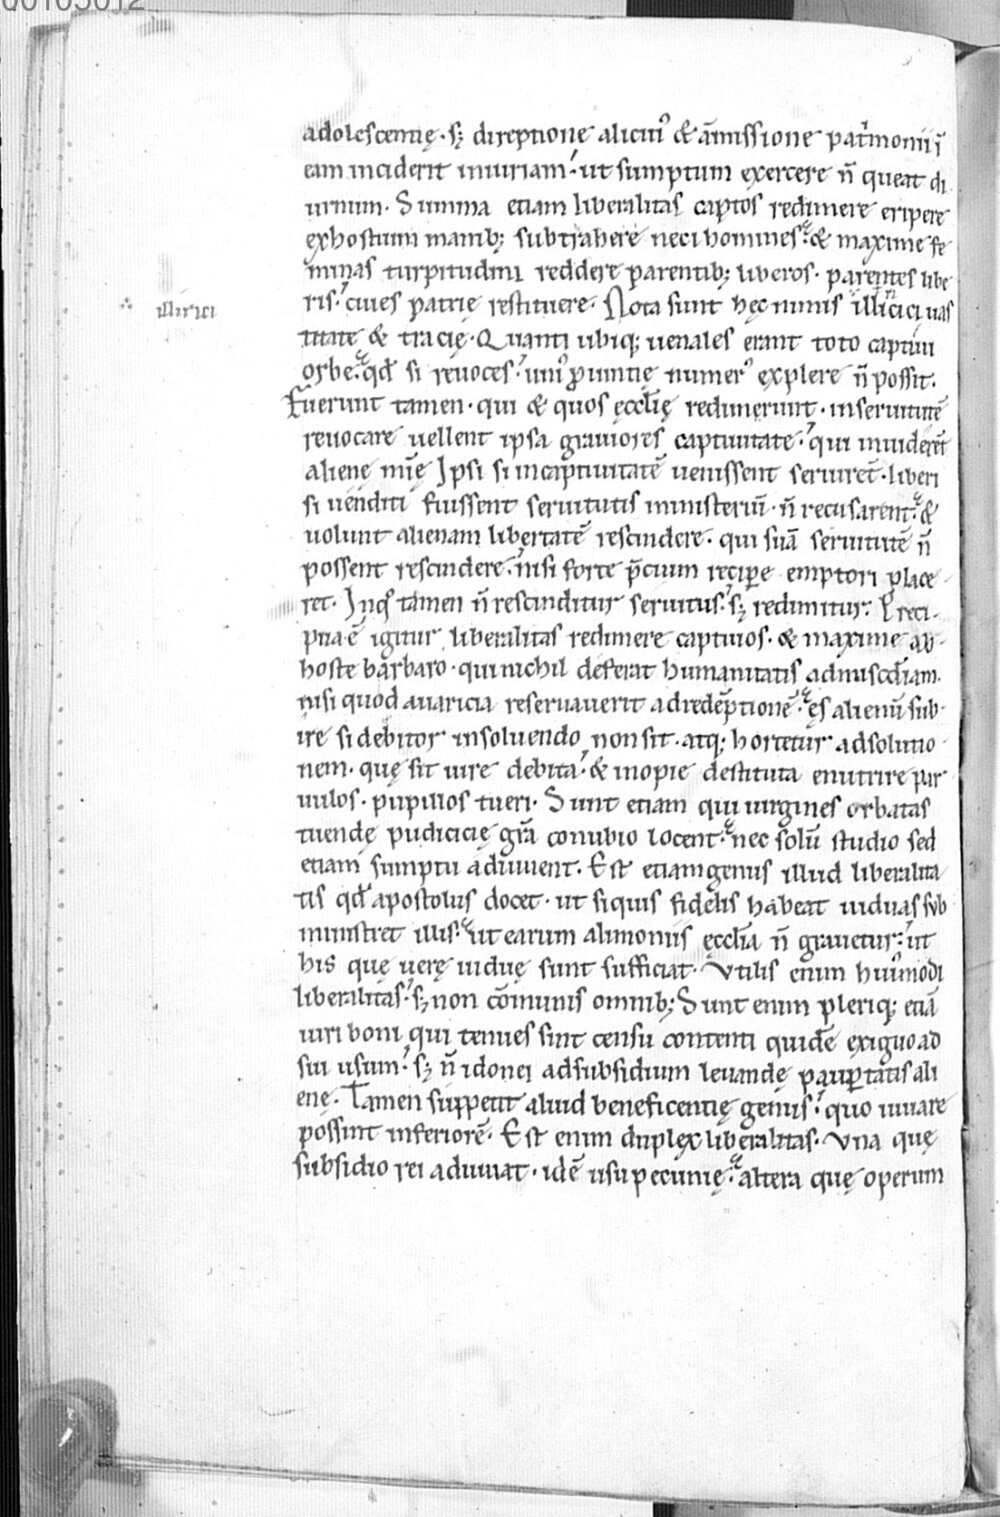 00105012
adolescentię · sꝫ direptione alicuiꝰ & āmissione pat̄monii ī
eam inciderit iniuriam · ut sumptum exercere n̄ queat di
urnum · Summa etiam liberalitas captos redimere eripere
ex hostium manibꝫ subtrahere neci homines · & maxime fe
minas turpitudini reddere parentibꝫ liberos · parentes libe
ris · ciues patrię restituere · Nota sunt hęc nimis illicici uas
∴ illirici
titate & tracię · Quanti ubiqꝫ uenales erant toto captiui
orbe · qđ si reuoces · uniꝰ ꝓuintię numerꝰ explere n̄ possit ·
Fuerunt tamen · qui & quos ęccłię redimerunt · in seruitutē
reuocare uellent ipsa grauiores captiuitate · qui inuiderēt
alienę mīę Ipsi si in captiuitatē uenissent seruirēt · liberi
si uenditi fuissent seruitutis ministeriū · n̄ recusarent · &
uolunt alienam libertatē rescindere · qui suā seruitutē n̄
possent rescindere · nisi forte p̄cium reciꝑe emptori place
ret · In qͦ tamen n̄ rescinditur seruitus · sꝫ redimitur · Preci
pua ē igitur liberalitas redimere captiuos · & maxime ab
hoste barbaro · qui nichil deferat humanitatis ad miscđiam ·
nisi quod auaricia reseruauerit ad redēptionē · ęs alienū sub
ire si debitor in soluendo non sit · atqꝫ hortetur ad solutio
nem · quę sit iure debita · & inopie destituta enutrire par
uulos · pupillos tueri · Sunt etiam qui uirgines orbatas
tuendę pudicicię gr̄a conubio locent · nec solū studio sed
etiam sumptu adiuuent · Est etiam genus illud liberalita
tis qđ apostolus docet · ut si quis fidelis habeat uiduas sub
ministret illis · ut earum alimoniis ęcclīa n̄ grauetur · ut
his quę uerę uiduę sunt sufficiat · Vtilis enim huiꝰmodi
liberalitas · sꝫ non cōmunis omnibꝫ · Sunt enim pleriqꝫ etiā
uiri boni qui tenues sint censu contenti quidē exiguo ad
sui usum · sꝫ n̄ idonei ad subsidium leuandę pauꝑtatis ali
enę · Tamen suppetit aliud beneficentię genus · quo iuuare
possint inferiorē · Est enim duplex liberalitas · Vna quę
subsidio rei adiuuat · idē usu pecunię · altera quę operum